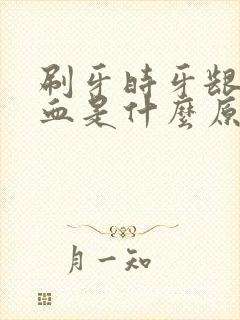 刷牙时牙龈
血是什麼原
月一知